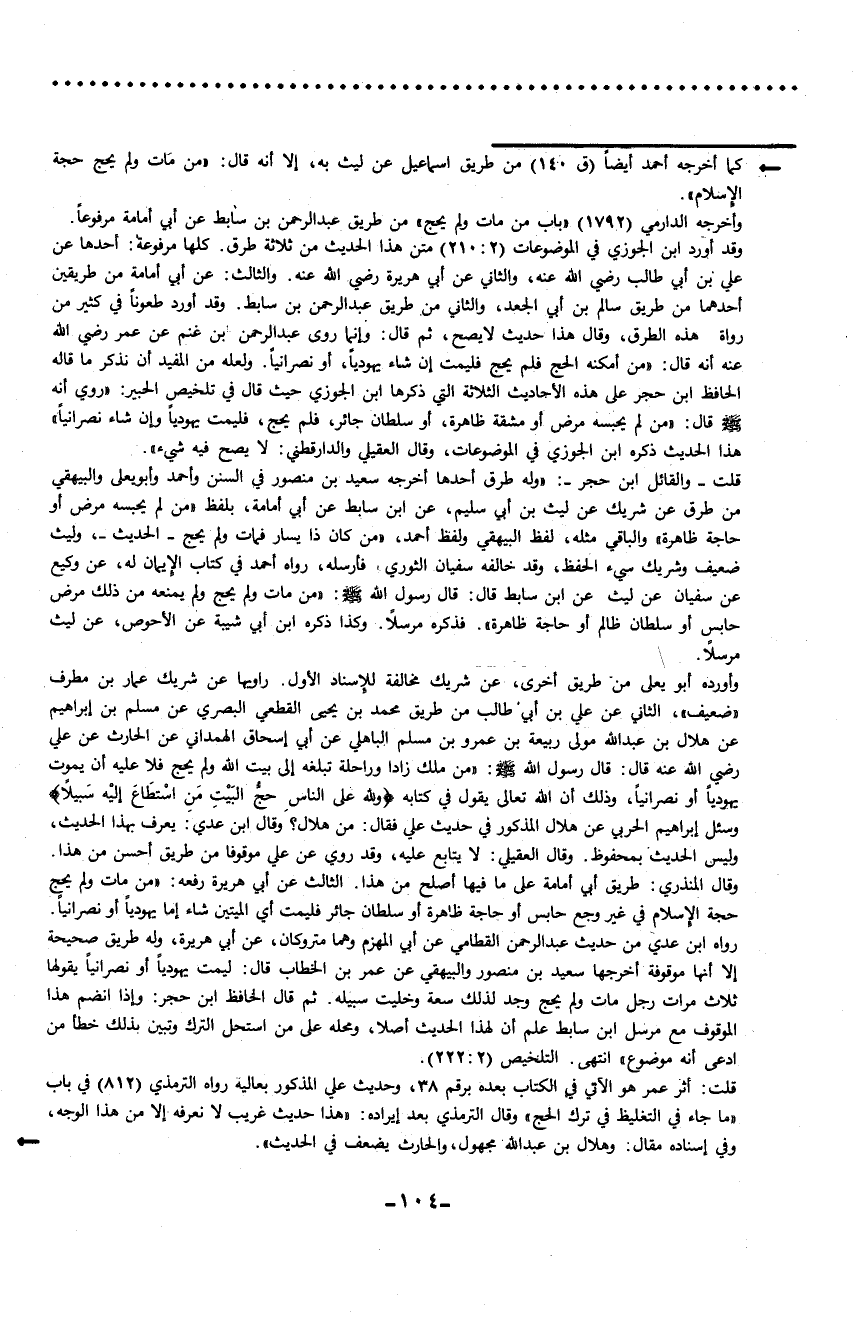 كما أخرجه أحمد أيضاً (ق ١٤٠) من طريق اسماعيل عن ليث به، إلا أنه قال: «من مات ولم يحج حجة
الإسلام».
وأخرجه الدارمي (١٧٩٢) «باب من مات ولم يحج» من طريق عبدالرحمن بن سابط عن أبي أمامة مرفوعاً.
وقد أورد ابن الجوزي في الموضوعات (٢:٢١٠) متن هذا الحديث من ثلاثة طرق. كلها مرفوعة: أحدها عن
علي بن أبي طالب رضي الله عنه، والثاني عن أبي هريرة رضي الله عنه. والثالث: عن أبي أمامة من طريقين
أحدهما من طريق سالم بن أبي الجعد، والثاني من طريق عبدالرحمن بن سابط. وقد أورد طعوناً في كثير من
رواة هذه الطرق، وقال هذا حديث لايصح، ثم قال: وإنما روى عبدالرحمن بن غنم عن عمر رضي الله
عنه أنه قال: «من أمكنه الحج فلم يحج فليمت إن شاء يهودياً، أو نصرانياً. ولعله من المفيد أن نذكر ما قاله
الحافظ ابن حجر على هذه الأحاديث الثلاثة التي ذكرها ابن الجوزي حيث قال في تلخيص الحبير: «روي أنه
ﷺ قال: «من لم يحبسه مرض أو مشقة ظاهرة، أو سلطان جائر، فلم يحج، فليمت يهودياً وإن شاء نصرانياً»
هذا الحديث ذكره ابن الجوزي في الموضوعات، وقال العقيلي والدارقطني: لا يصح فيه شيء».
قلت ـ والقائل ابن حجر ـ: «وله طرق أحدها أخرجه سعيد بن منصور في السنن وأحمد وأبويعلى والبيهقي
من طرق عن شريك عن ليث بن أبي سليم، عن ابن سابط عن أبي أمامة، بلفظ «من لم يحبسه مرض أو
حاجة ظاهرة» والباقي مثله، لفظ البيهقي ولفظ أحمد، «من كان ذا يسار فمات ولم يحج ـ الحديث ـ، وليث
ضعيف وشريك سيء الحفظ، وقد خالفه سفيان الثوري، فأرسله، رواه أحمد في كتاب الإيمان له، عن وكيع
عن سفيان عن ليث عن ابن سابط قال: قال رسول الله ﷺ: «من مات ولم يحج ولم يمنعه من ذلك مرض
حابس أو سلطان ظالم أو حاجة ظاهرة». فذكره مرسلًا. وكذا ذكره ابن أبي شيبة عن الأحوص، عن ليث
مرسلًا.
وأورده أبو يعلى من طريق أخرى، عن شريك مخالفة للإسناد الأول. راويها عن شريك عمار بن مطرف
«ضعيف»، الثاني عن علي بن أبي طالب من طريق محمد بن يحيى القطعي البصري عن مسلم بن إبراهيم
عن هلال بن عبدالله مولى ربيعة بن عمرو بن مسلم الباهلي عن أبي إسحاق الهمداني عن الحارث عن علي
رضي الله عنه قال: قال رسول الله ﷺ: «من ملك زادا وراحلة تبلغه إلى بيت الله ولم يحج فلا عليه أن يموت
يهودياً أو نصرانياً، وذلك أن الله تعالى يقول في كتابه ﴿ولله على الناس حجُّ البَيْتِ مَنِ اسْتَطَاعَ إلَيْه سَبيلًا﴾
وسئل إبراهيم الحربي عن هلال المذكور في حديث علي فقال: من هلال؟ وقال ابن عدي: يعرف بهذا الحديث،
وليس الحديث بمحفوظ. وقال العقيلي: لا يتابع عليه، وقد روي عن علي موقوفا من طريق أحسن من هذا.
وقال المنذري: طريق أبي أمامة على ما فيها أصلح من هذا. الثالث عن أبي هريرة رفعه: «من مات ولم يحج
حجة الإسلام في غير وجع حابس أو حاجة ظاهرة أو سلطان جائر فليمت أي الميتين شاء إما يهودياً أو نصرانياً.
رواه ابن عدي من حديث عبدالرحمن القطامي عن أبي المهزم وهما متروكان، عن أبي هريرة، وله طريق صحيحة
إلا أنها موقوفة أخرجها سعيد بن منصور والبيهقي عن عمر بن الخطاب قال: ليمت يهودياً أو نصرانياً يقولها
ثلاث مرات رجل مات ولم يحج وجد لذلك سعة وخليت سبيله. ثم قال الحافظ ابن حجر: وإذا انضم هذا
الموقوف مع مرسل ابن سابط علم أن لهذا الحديث أصلا، ومحله على من استحل الترك وتبين بذلك خطأ من
ادعى أنه موضوع» انتهى. التلخيص (٢:٢٢٢).
قلت: أثر عمر هو الآتي في الكتاب بعده برقم ٣٨، وحديث علي المذكور بعالية رواه الترمذي (٨١٢) في باب
«ما جاء في التغليظ في ترك الحج» وقال الترمذي بعد إيراده: «هذا حديث غريب لا نعرفه إلا من هذا الوجه،
وفي إسناده مقال: وهلال بن عبدالله مجهول، والحارث يضعف في الحديث».
-١٠٤-